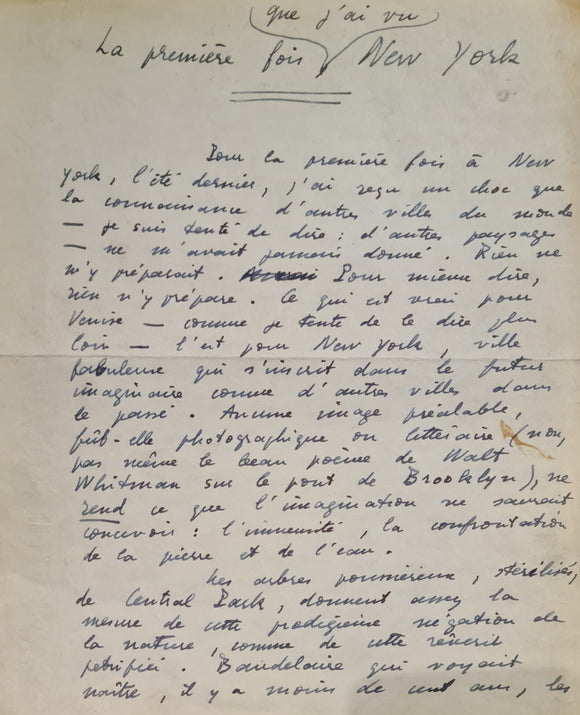 que j'ai vu
La première fois New York
Pour la première fois à New
York, l'été dernier, j'ai reçu un choc que
la connaissance d'autres villes du monde
— je suis tenté de dire : d'autres paysages
— ne m'avait jamais donné. Rien ne
m'y préparait. Pour mieux dire,
rien n'y prépare. Ce qui est vrai pour
Venise — comme je tente de le dire plus
loin — l'est pour New York, ville
fabuleuse qui s'inscrit dans le futur
imaginaire comme d'autres villes dans
le passé. Aucune image préalable,
fût-elle photographique ou littéraire (non,
pas même le beau poème de Walt
Whitman sur le pont de Brooklyn), ne
rend ce que l'imagination ne saurait
concevoir : l'immensité, la confrontation
de la pierre et de l'eau.
Les arbres poussiéreux, stérilisés,
de Central Park, donnent assez la
mesure de cette prodigieuse négation de
la nature, comme de cette rêverie
pétrifiée. Baudelaire qui voyait
naître, il y a moins de cent ans, les